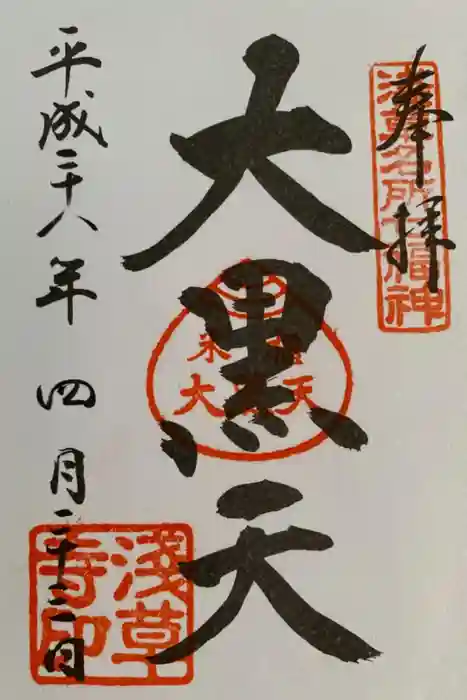 奉拝
浅草名所七福神
大黒天
米
大黒天
平成二十八年四月二十三日
浅草
寺印